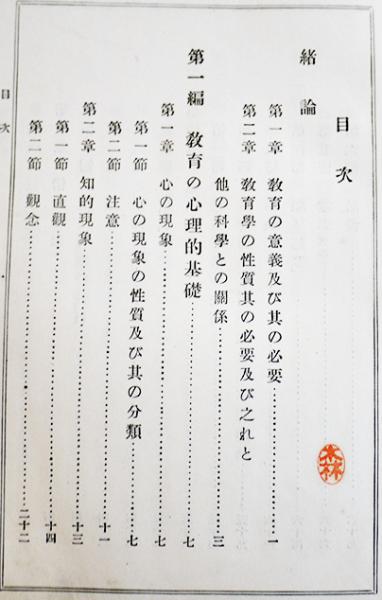 目次
緒論
第一章 教育の意義及び其の必要…………一
第二章 教育學の性質其の必要及び之れと
他の科學との關係…………三
第一編 教育の心理的基礎…………七
第一章 心の現象…………七
第一節 心の現象の性質及び其の分類…………七
第二節 注意…………十一
第二章 知的現象…………十三
第一節 直觀…………十四
第二節 觀念…………二十二
目次